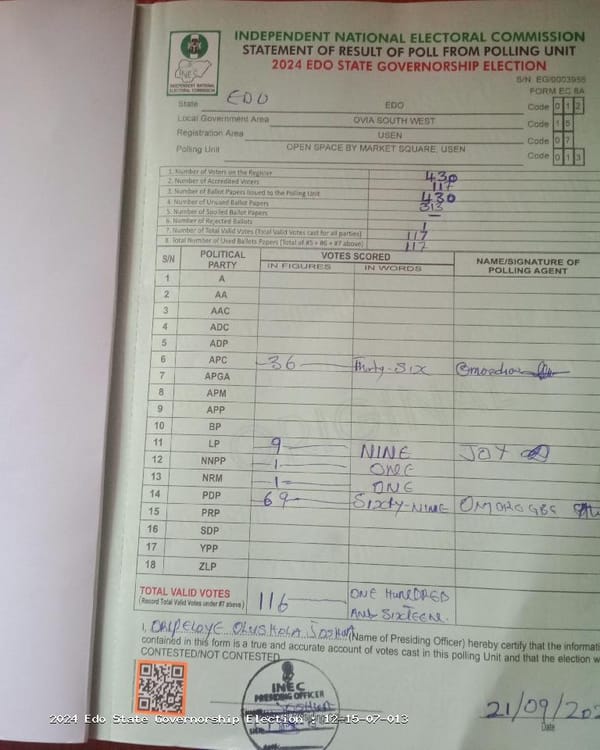 INDEPENDENT NATIONAL ELECTORAL COMMISSION
STATEMENT OF RESULT OF POLL FROM POLLING UNIT
2024 EDO STATE GOVERNORSHIP ELECTION
INEC
INDEPENDENT NATIONAL
ELECTORAL COMMISSION
S/N EG/0003955
FORM EC 8A
State EDO EDO Code 0 1 2
Local Government Area OVIA SOUTH WEST Code 1 5
Registration Area USEN Code 0 7
Polling Unit OPEN SPACE BY MARKET SQUARE, USEN Code 0 1 3
1. Number of Voters on the Register 430
2. Number of Accredited Voters 117
3. Number of Ballot Papers Issued to the Polling Unit 430
4. Number of Unused Ballot Papers 313
5. Number of Spoiled Ballot Papers —
6. Number of Rejected Ballots 1
7. Number of Total Valid Votes (Total Valid Votes cast for all parties) 117
8. Total Number of Used Ballots Papers (Total of #5 + #6 + #7 above) 117
S/N POLITICAL PARTY VOTES SCORED NAME/SIGNATURE OF POLLING AGENT
IN FIGURES IN WORDS
1 A
2 AA
3 AAC
4 ADC
5 ADP
6 APC 36 Thirty-Six
7 APGA
8 APM
9 APP
10 BP
11 LP 9 NINE JOY
12 NNPP 1 ONE
13 NRM 1 ONE
14 PDP 69 Sixty-NINE OMOROGBE
15 PRP
16 SDP
17 YPP
18 ZLP
TOTAL VALID VOTES 116 ONE HUNDRED
(Record Total Valid Votes under #7 above) AND SIXTEEN.
I, OLUSHOLA JOSHUA (Name of Presiding Officer) hereby certify that the informati
contained in this form is a true and accurate account of votes cast in this polling Unit and that the election w
CONTESTED/NOT CONTESTED
INEC
PRESIDING OFFICER
JOSHUA
21/09/202
Date
2024 Edo State Governorship Election : 12-15-07-013